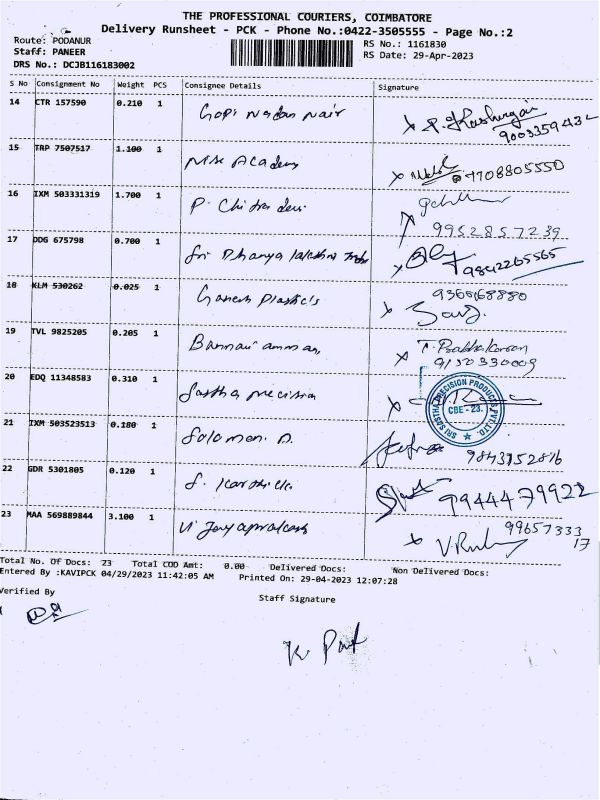 THE PROFESSIONAL COURIERS, COIMBATORE
Delivery Runsheet - PCK - Phone No.:0422-3505555 - Page No.:2
Route: PODANUR
RS No.: 1161830
Staff: PANEER
RS Date: 29-Apr-2023
DRS No.: DCJB116183002
S No Consignment No Weight PCS Consignee Details Signature
14 CTR 157590 0.210 1 Gopi Madan Nair
9003359432
15 TRP 7507517 1.100 1 Academy
7708805550
16 IXM 503331319 1.700 1 P. Chitra devi
9952857239
17 DDG 675798 0.700 1 Sri Dhanya
9842265565
18 KLM 530262 0.025 1 Ganesh Plastic's
9366168880
19 TVL 9825205 0.205 1 Bannari amman
T. Prabhakaran
9150330009
20 EDQ 11348583 0.310 1 Sastha precision
SRI SASTHA PRECISION PRODUCTS PVT. LTD.
CBE - 23.
21 IXM 503523513 0.180 1 Solomon. D.
9843152816
22 GDR 5301805 0.120 1 S. Karthick
9944479922
23 MAA 569889844 3.100 1 Vijay aprakash
99657333
17
Total No. Of Docs: 23 Total COD Amt: 0.00 Delivered Docs: Non Delivered Docs:
Entered By :KAVIPCK 04/29/2023 11:42:05 AM Printed On: 29-04-2023 12:07:28
Verified By
Staff Signature